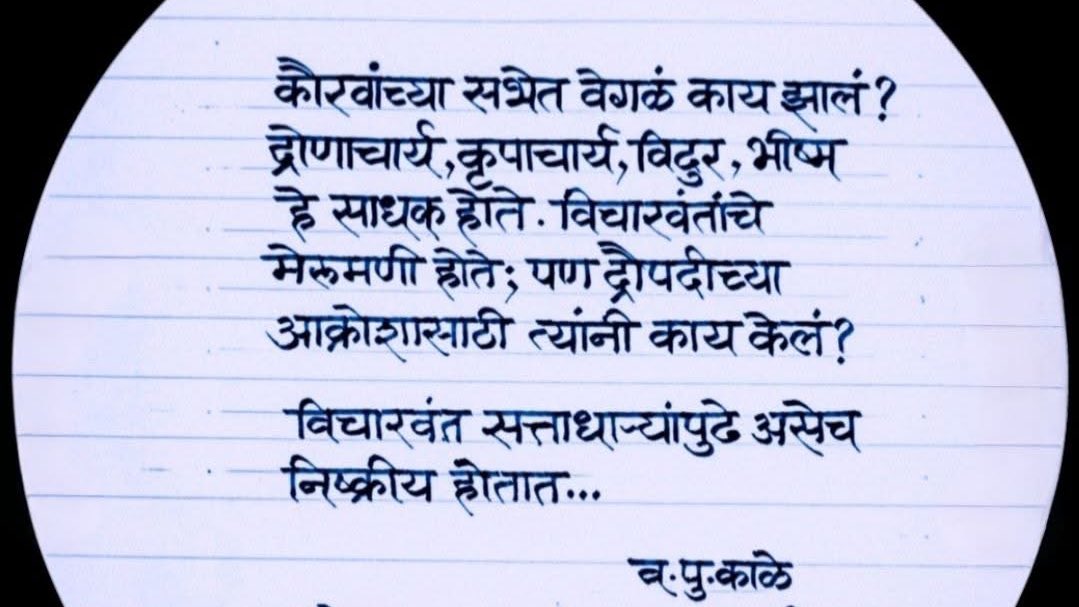 कौरवांच्या सभेत वेगळं काय झालं?
द्रोणाचार्य, कृपाचार्य, विदुर, भीष्म
हे साधक होते. विचारवंतांचे
मेरूमणी होते; पण द्रौपदीच्या
आक्रोशासाठी त्यांनी काय केलं?
विचारवंत सत्ताधाऱ्यांपुढे असेच
निष्क्रीय होतात...
व. पु. काळे